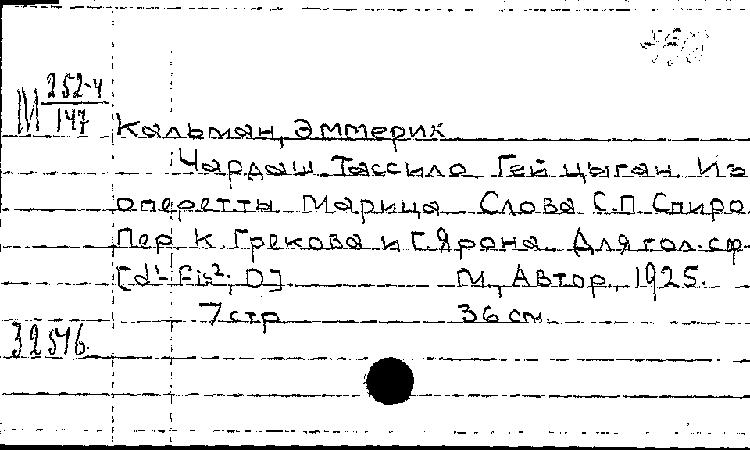 М 252-4
147
Кальман, Эммерих
Чардаш Тассило Гей цыган Из
оперетты Марица Слова С.П. Спиро
Пер К. Грекова и Г. Ярона Для гол. с ф
[d¹- Fis²; D] М., Автор, 1925.
7 стр 36 см.
32546.